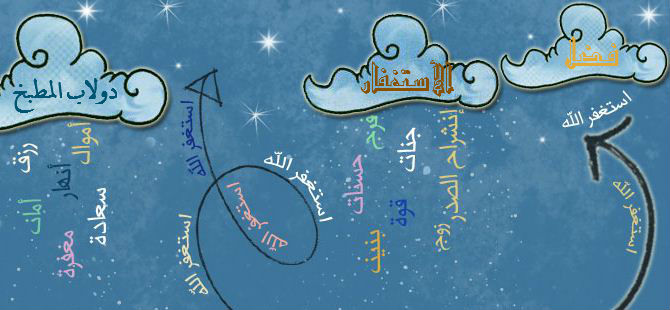 فضل
الاستغفار
دولاب المطبخ
استغفر الله
استغفر الله
إنشراح الصدر
زوج
جنات
قوة
فرج
حسنات
بنين
استغفر الله
استغفر الله
استغفر الله
استغفر الله
أموال
سعادة
أنهار
مغفرة
رزق
أمان